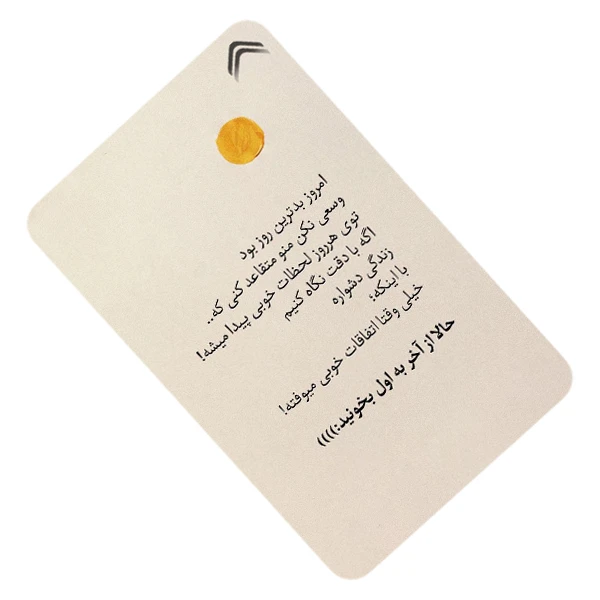 امروز بدترین روز بود
وسعی نکن منو متقاعد کنی که..
توی هرروز لحظات خوبی پیدا میشه!
اگه با دقت نگاه کنیم
زندگی دشواره
با اینکه:
خیلی وقتا اتفاقات خوبی میوفته!
حالا از آخر به اول بخونید:))))